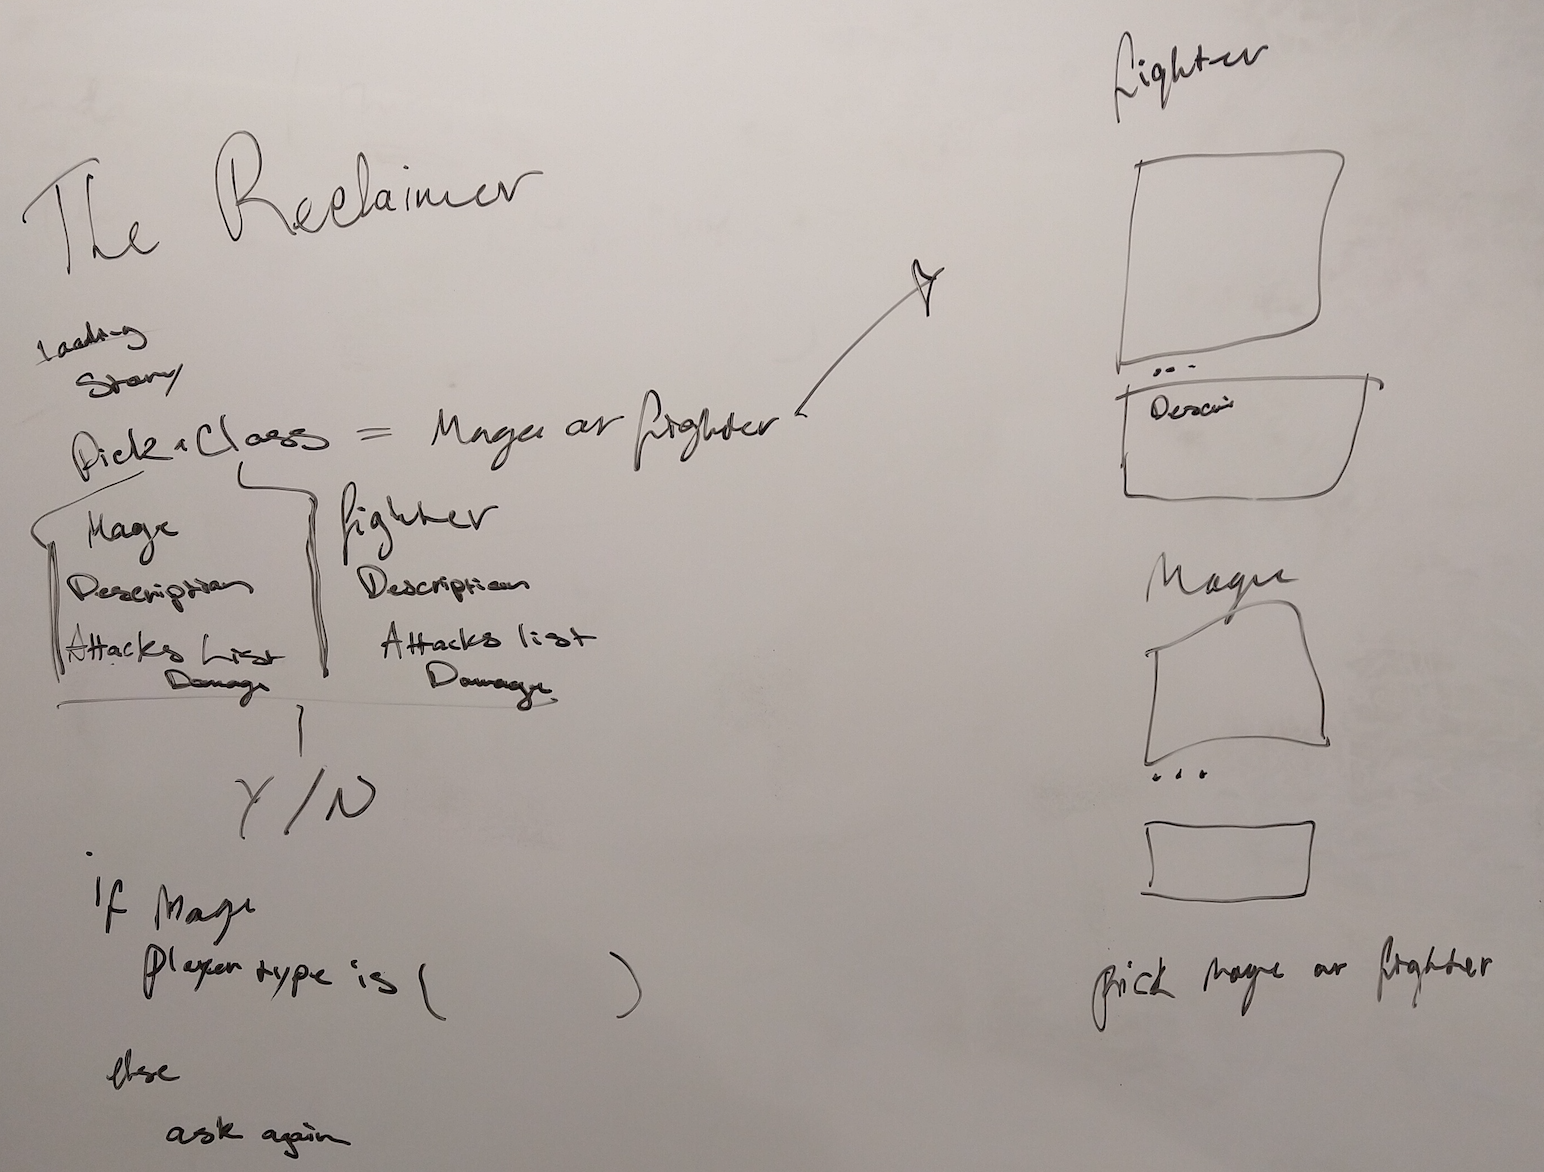 The Reclaimer
Loading
Story
Pick a Class = Mage or fighter
Mage
Description
Attacks List
Damage
fighter
Description
Attacks list
Damage
Y/N
if Mage
player type is (          )
else
ask again
fighter
...
Descri
Mage
...
pick Mage or fighter